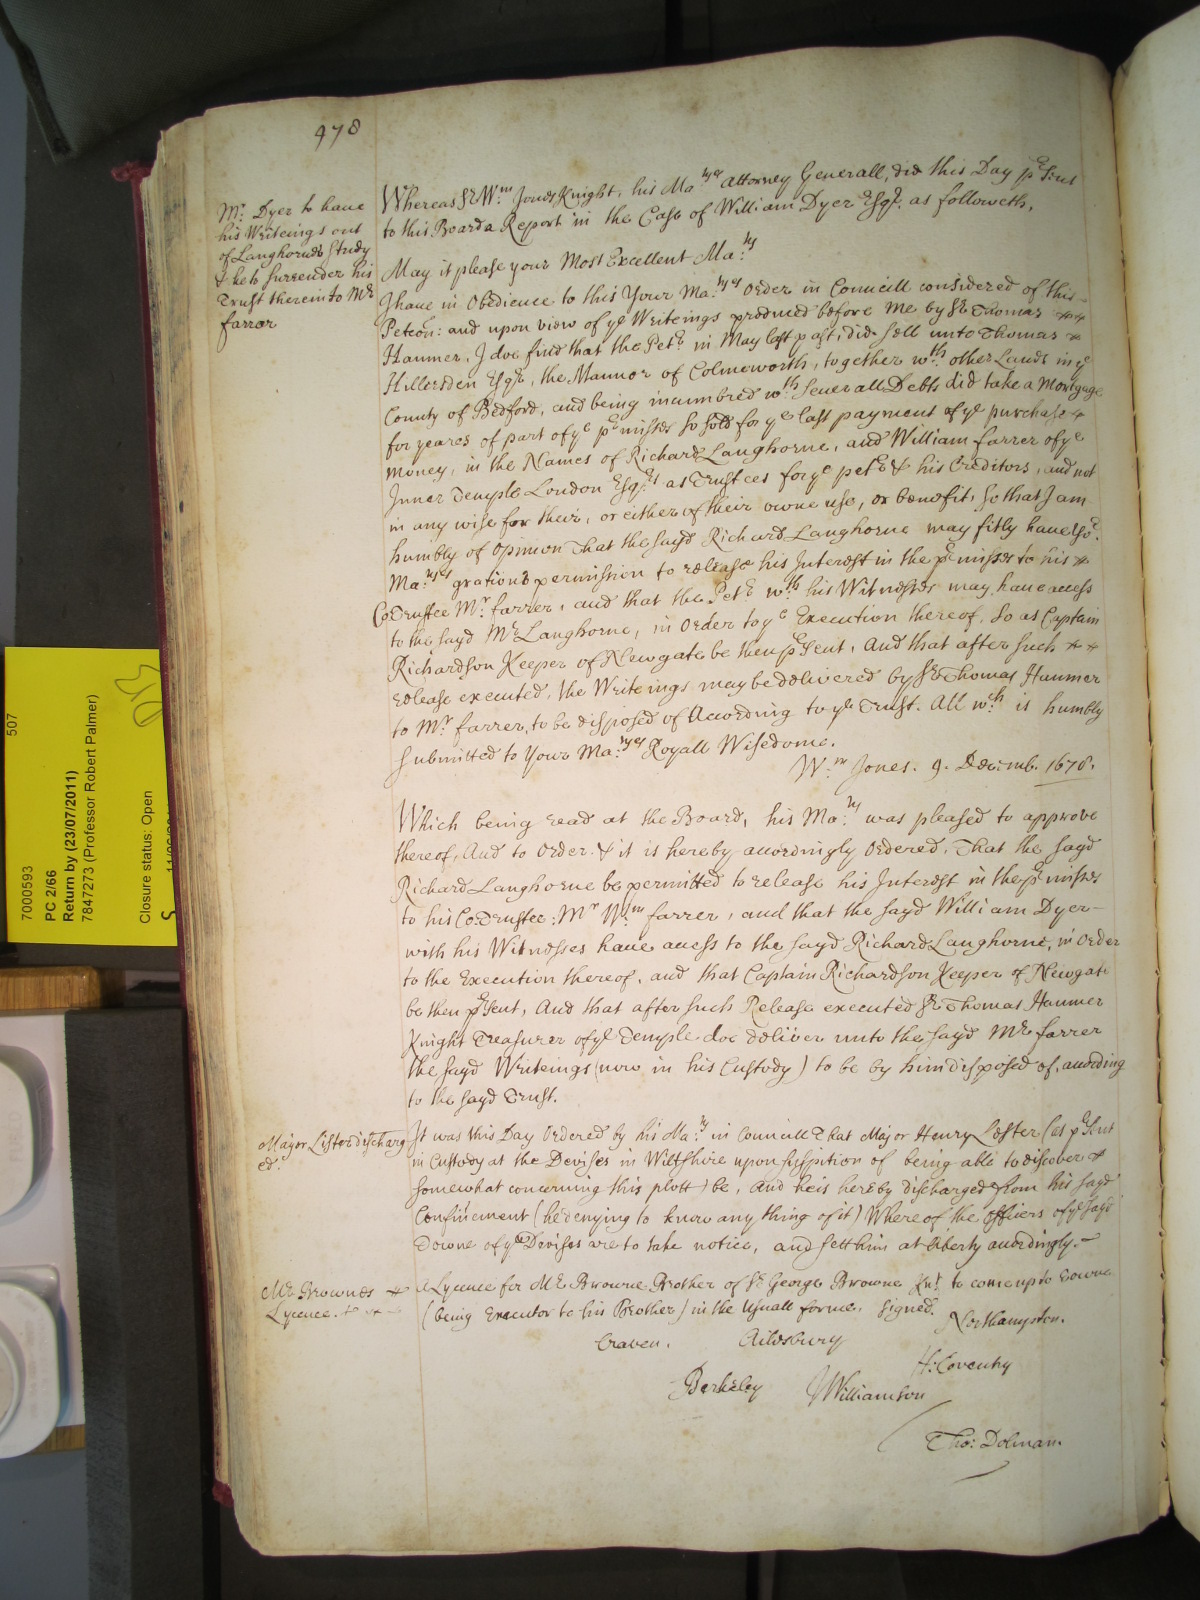 478
Mr. Dyer to haue
his Writeings out
of Langhornes Study
& he to surrender his
Trust therein to Mr
farrer
Whereas Sr Wm. Jones Knight, his Ma.tyes Attorney Generall, did this Day pesent
to this Board a Report in the Case of William Dyer Esqr. as followeth,
May it please your Most Excellent Ma.ty
I haue in Obedience to this Your Ma.tyes Order in Councill considered of this
Peticon: and upon view of ye Writeings produced before me by Sr Thomas
Hanmer, I doe find that the Petr. in May last past, did sell unto Thomas
Hillersden Esqr, the Mannor of Colmeworth, together wth. other Lands in ye
County of Bedford, and being incumbred wth. seuerall Debts did take a Mortgage
for yeares of part of ye pemisses so sold for ye last payment of ye purchase
money, in the Names of Richard Langhorne, and William farrer of ye
Inner Temple London Esqrs. as Trustees for ye petr & his Creditors, and not
in any wise for their, or either of their owne use, or benefit, so that I am
humbly of opinion That the sayd Richard Langhorne may fitly haue Yor.
Ma.tyes gratious permission to release his Interest in the pemisses to his
Co-Trustee Mr. farrer, and that the Petr wth. his Witnesses may haue access
to the sayd Mr Langhorne, in Order to ye Execution thereof, So as Captain
Richardson Keeper of Newgate be then pesent, And that after such
release executed, the Writeings may be delivered by Sr Thomas Hanmer
to Mr farrer, to be disposed of According to ye Trust. All wch. is humbly
Submitted to Your Ma.tyes Royall Wisedome.
Wm. Jones. 9. Decemb. 1678.
Which being read at the Board, his Ma.ty was pleased to approve
thereof, And to Order & it is hereby accordingly Ordered, That the sayd
Richard Langhorne be permitted to release his Interest in the pemisses
to his Co-Trustee Mr Wm. farrer, and that the sayd William Dyer
with his Witnesses haue access to the sayd Richard Langhorne, in Order
to the Execution thereof, and that Captain Richardson Keeper of Newgate
be then pesent, And that after such Release executed Sr Thomas Hanmer
Knight Treasurer of ye Temple doe deliver unto the sayd Mr farrer
the sayd Writeings (now in his Custody) to be by him disposed of, according
to the sayd Trust.
Major Lister discharg
ed.
It was this Day Ordered by his Ma.ty in Councill That Major Henry Lester (at pesent
in Custody at the Devises in Wiltshire upon suspition of being able to discover
somewhat concerning this plott) be, and he is hereby discharged from his sayd
Confinement (he denying to know any thing of it) Whereof the Officers of ye sayd
Towne of ye Devises are to take notice, and sett him at liberty accordingly.
Mr. Brownes
Lycence.
A Lycence for Mr Browne Brother of Sr George Browne Knt. to come up to Towne
(being Executor to his Brother) in the Usuall forme. Signed.
Craven. Ailesbury Northampton.
H: Coventry
Berkeley JWilliamson
Tho: Dolman.
7000593
507
PC 2/66
Return by (23/07/2011)
7847273 (Professor Robert Palmer)
Closure status: Open